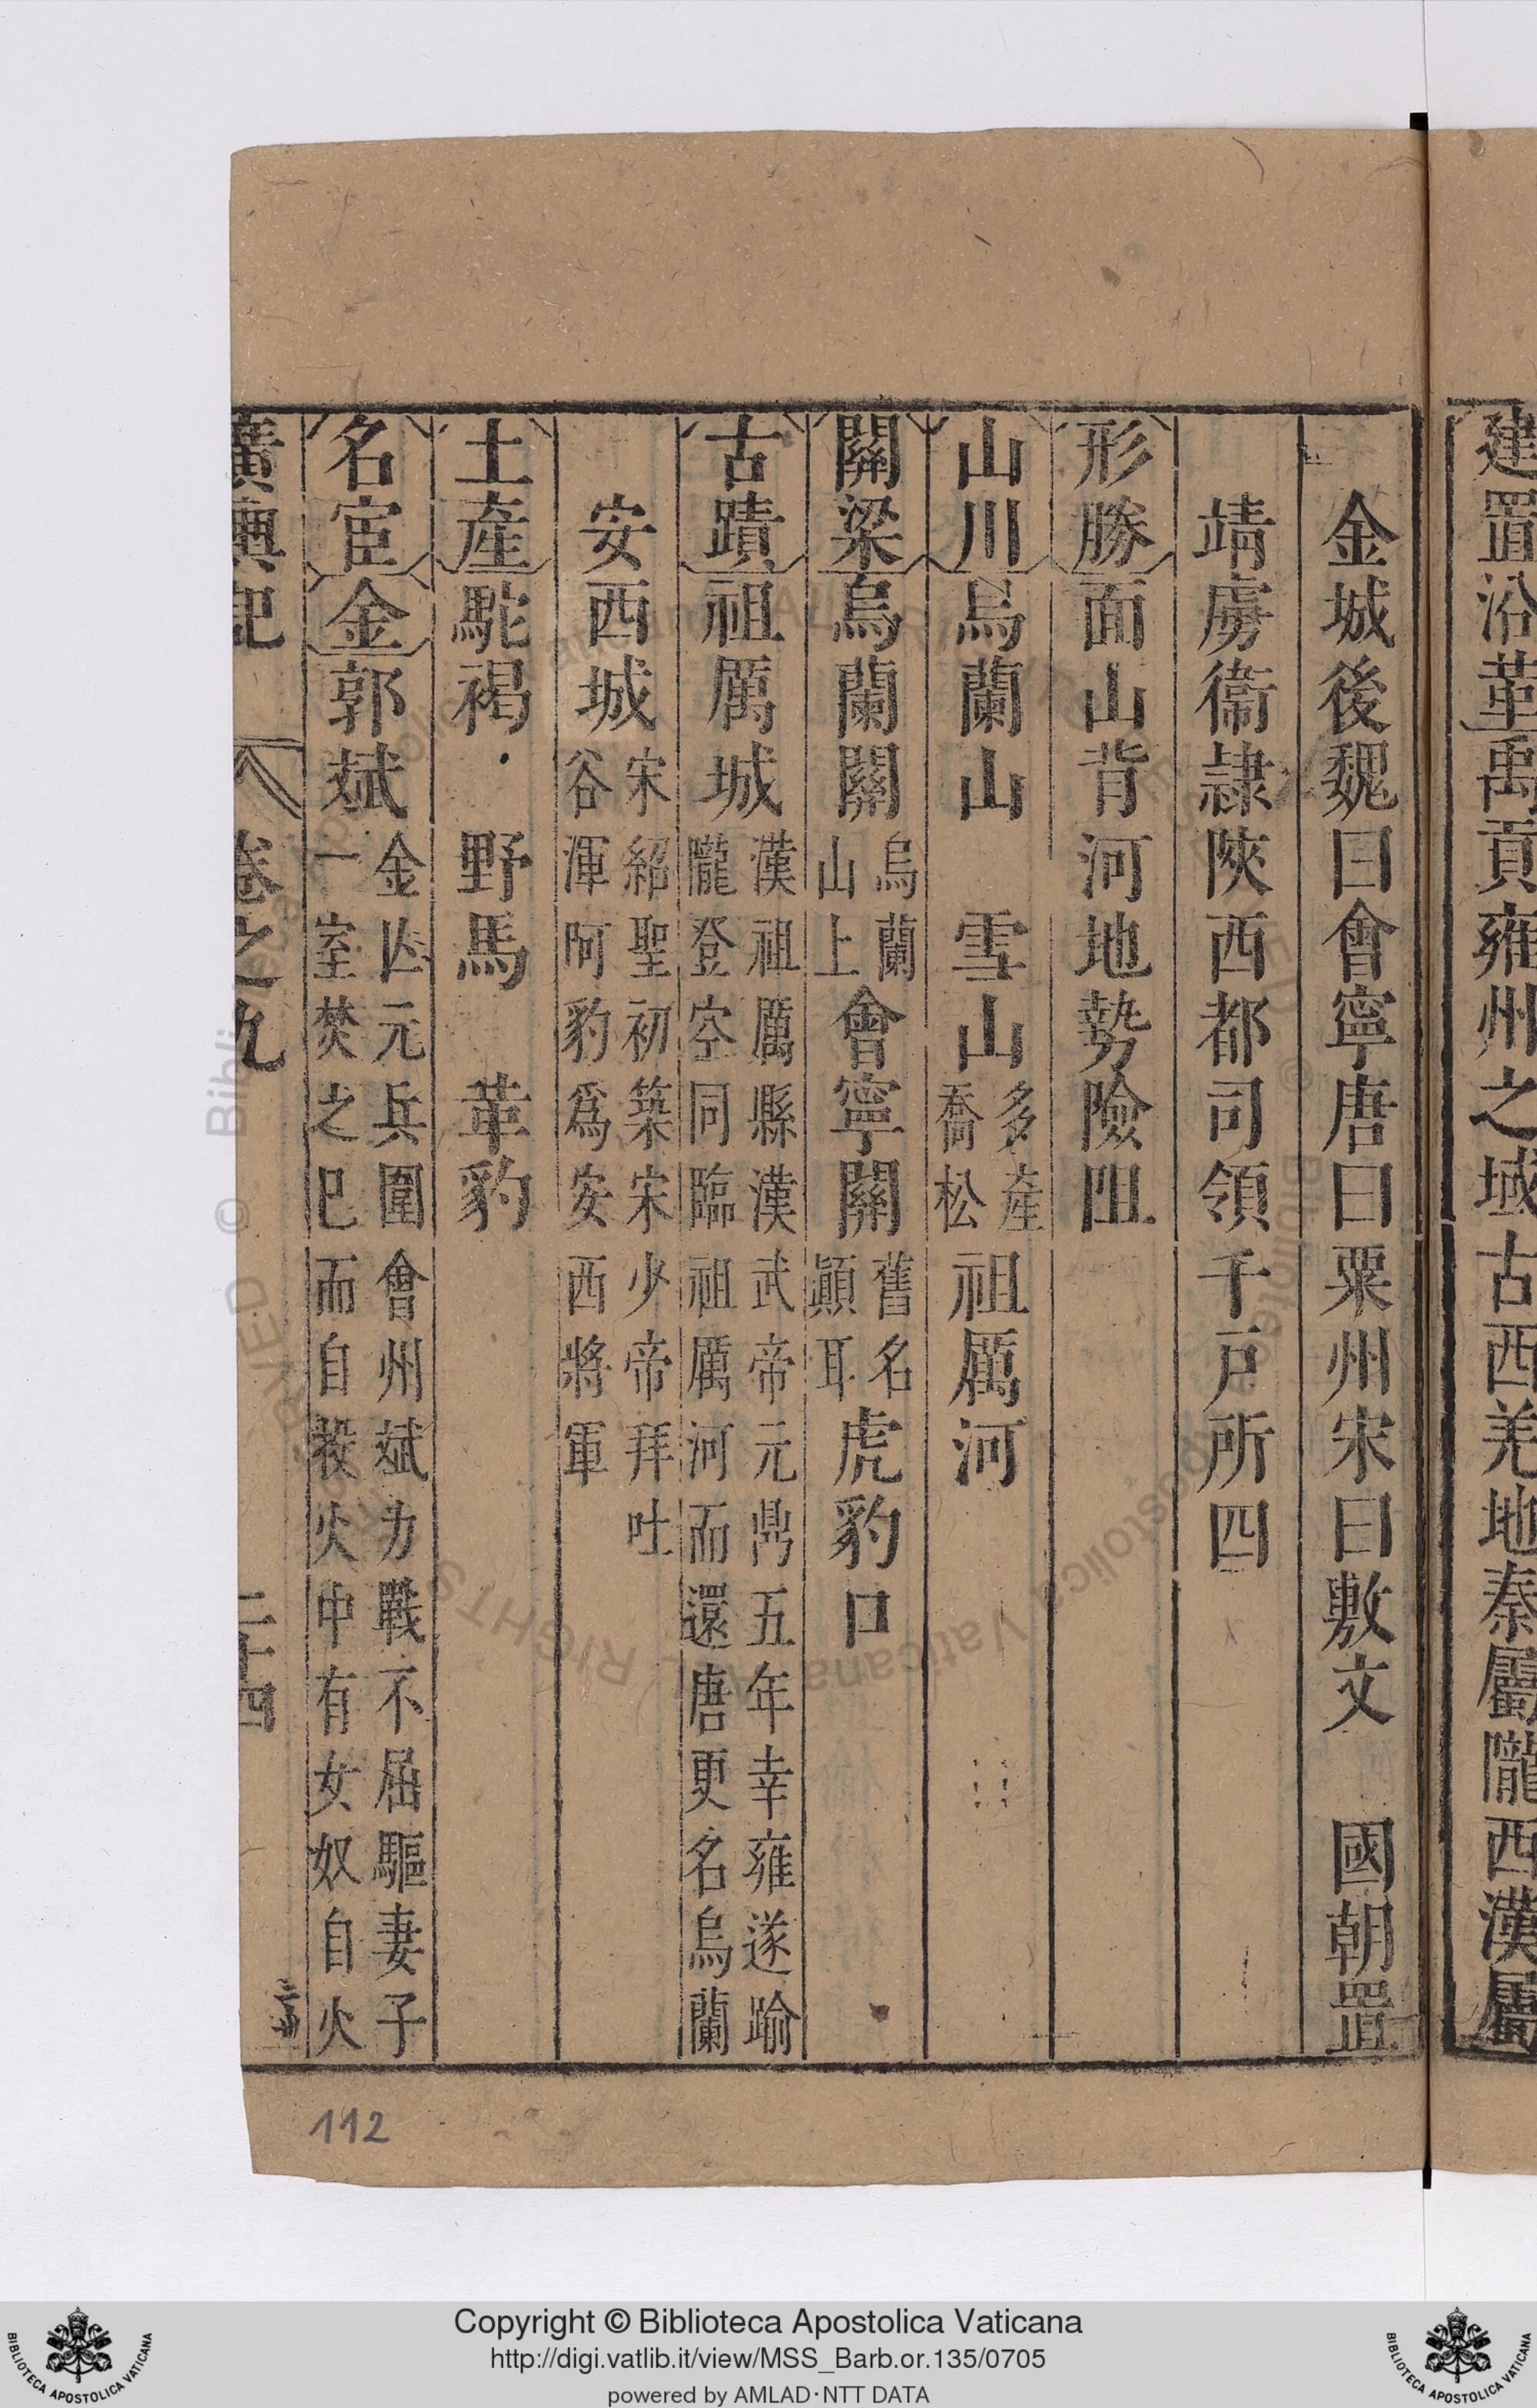 建置沿革禹貢雍州之域古西羌地秦屬隴西漢屬
金城後魏曰會寧唐曰粟州宋曰敷文　國朝置
靖虜衞隷陝西都司領千戸所四
形勝面山背河地勢險阻
山川烏蘭山　雪山多產喬松祖厲河
關梁烏蘭關烏蘭山上會寧關舊名顚耳虎豹口
古蹟祖厲城漢祖厲縣漢武帝元鼎五年幸雍遂踰隴登空同臨祖厲河而還唐更名烏蘭
安西城宋紹聖初築宋少帝拜吐谷渾阿豹爲安西將軍
土產駝褐　野馬　𦍑豹
名宦金郭斌金亾元兵圍會州斌力戰不屈驅妻子一室焚之巳而自投火中有女奴自火
廣輿記　卷之九　二十四
112
Copyright © Biblioteca Apostolica Vaticana
http://digi.vatlib.it/view/MSS_Barb.or.135/0705
powered by AMLAD·NTT DATA
BIBLIOTECA APOSTOLICA VATICANA
BIBLIOTECA APOSTOLICA VATICANA